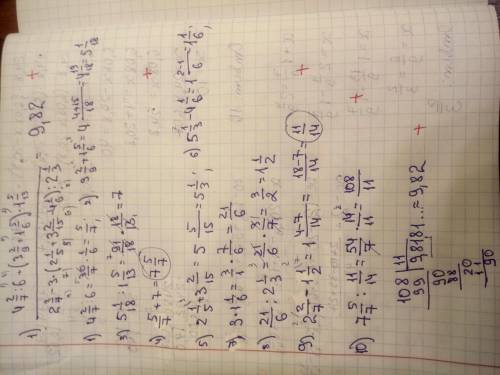 1) 4 2/7 : 6 + (3 2/9 + 1 5/6) · 1 5/13
2 2/7 - 3 · (2 1/5 + 3 2/15 - 4 1/6) : 2 1/3 = 9,82 +
1) 4 2/7 : 6 = 30/7 · 1/6 = 5/7; 2) 3 2/9 + 1 5/6 = 4 4+15/18 = 4 19/18 = 5 1/18
3) 5 1/18 · 1 5/13 = 91/18 · 18/13 = 7
4) 5/7 + 7 = 7 5/7 +
5) 2 1/5 + 3 2/15 = 5 5/15 = 5 1/3; 6) 5 1/3 - 4 1/6 = 1 2-1/6 = 1 1/6;
7) 3 · 1 1/6 = 3/1 · 7/6 = 21/6
8) 21/6 : 2 1/3 = 21/6 · 3/7 = 3/2 = 1 1/2
9) 2 2/7 - 1 1/2 = 1 4-7/14 = 18-7/14 = 11/14 +
10) 7 5/7 : 11/14 = 54/7 · 14/11 = 108/11
108 | 11
99 9,8181... = 9,82 +
90
88
20
11
90